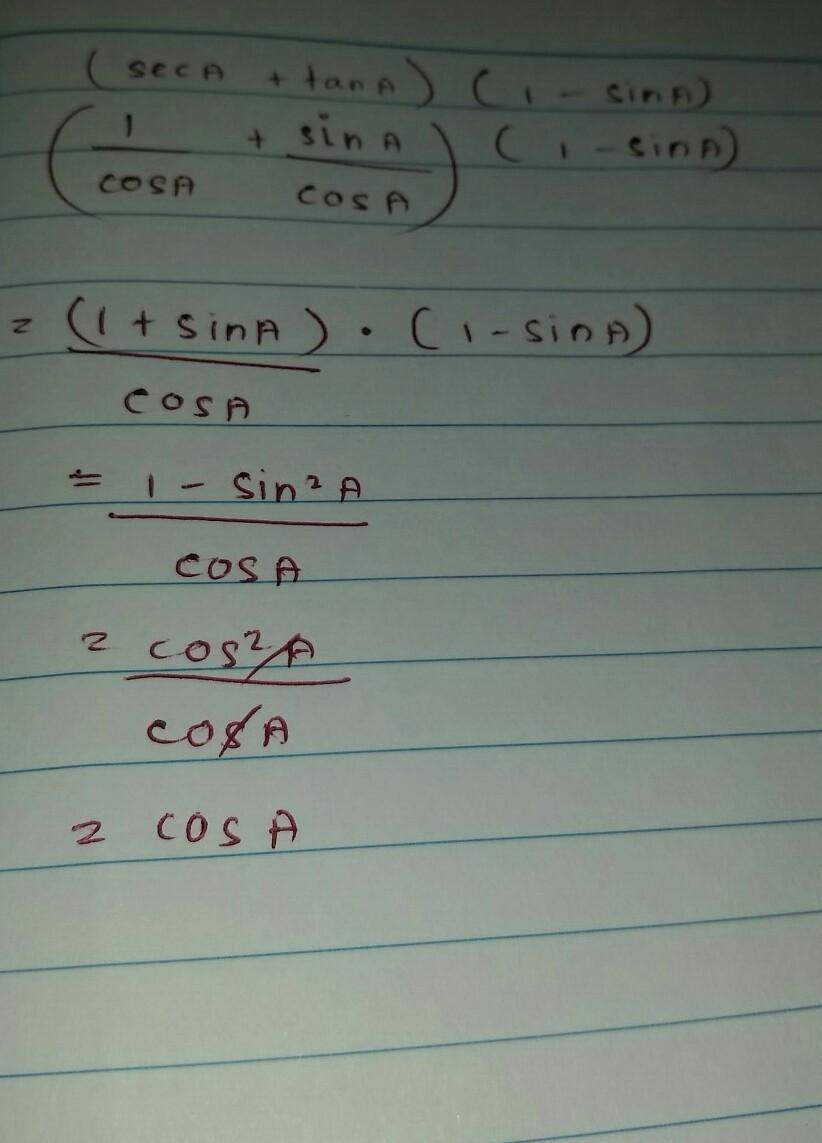 (secA + tanA) (1 - sinA)
(1/cosA + sinA/cosA) (1 - sinA)
= (1 + sinA)/cosA · (1 - sinA)
= 1 - sin²A/cosA
= cos²A/cosA
= cosA